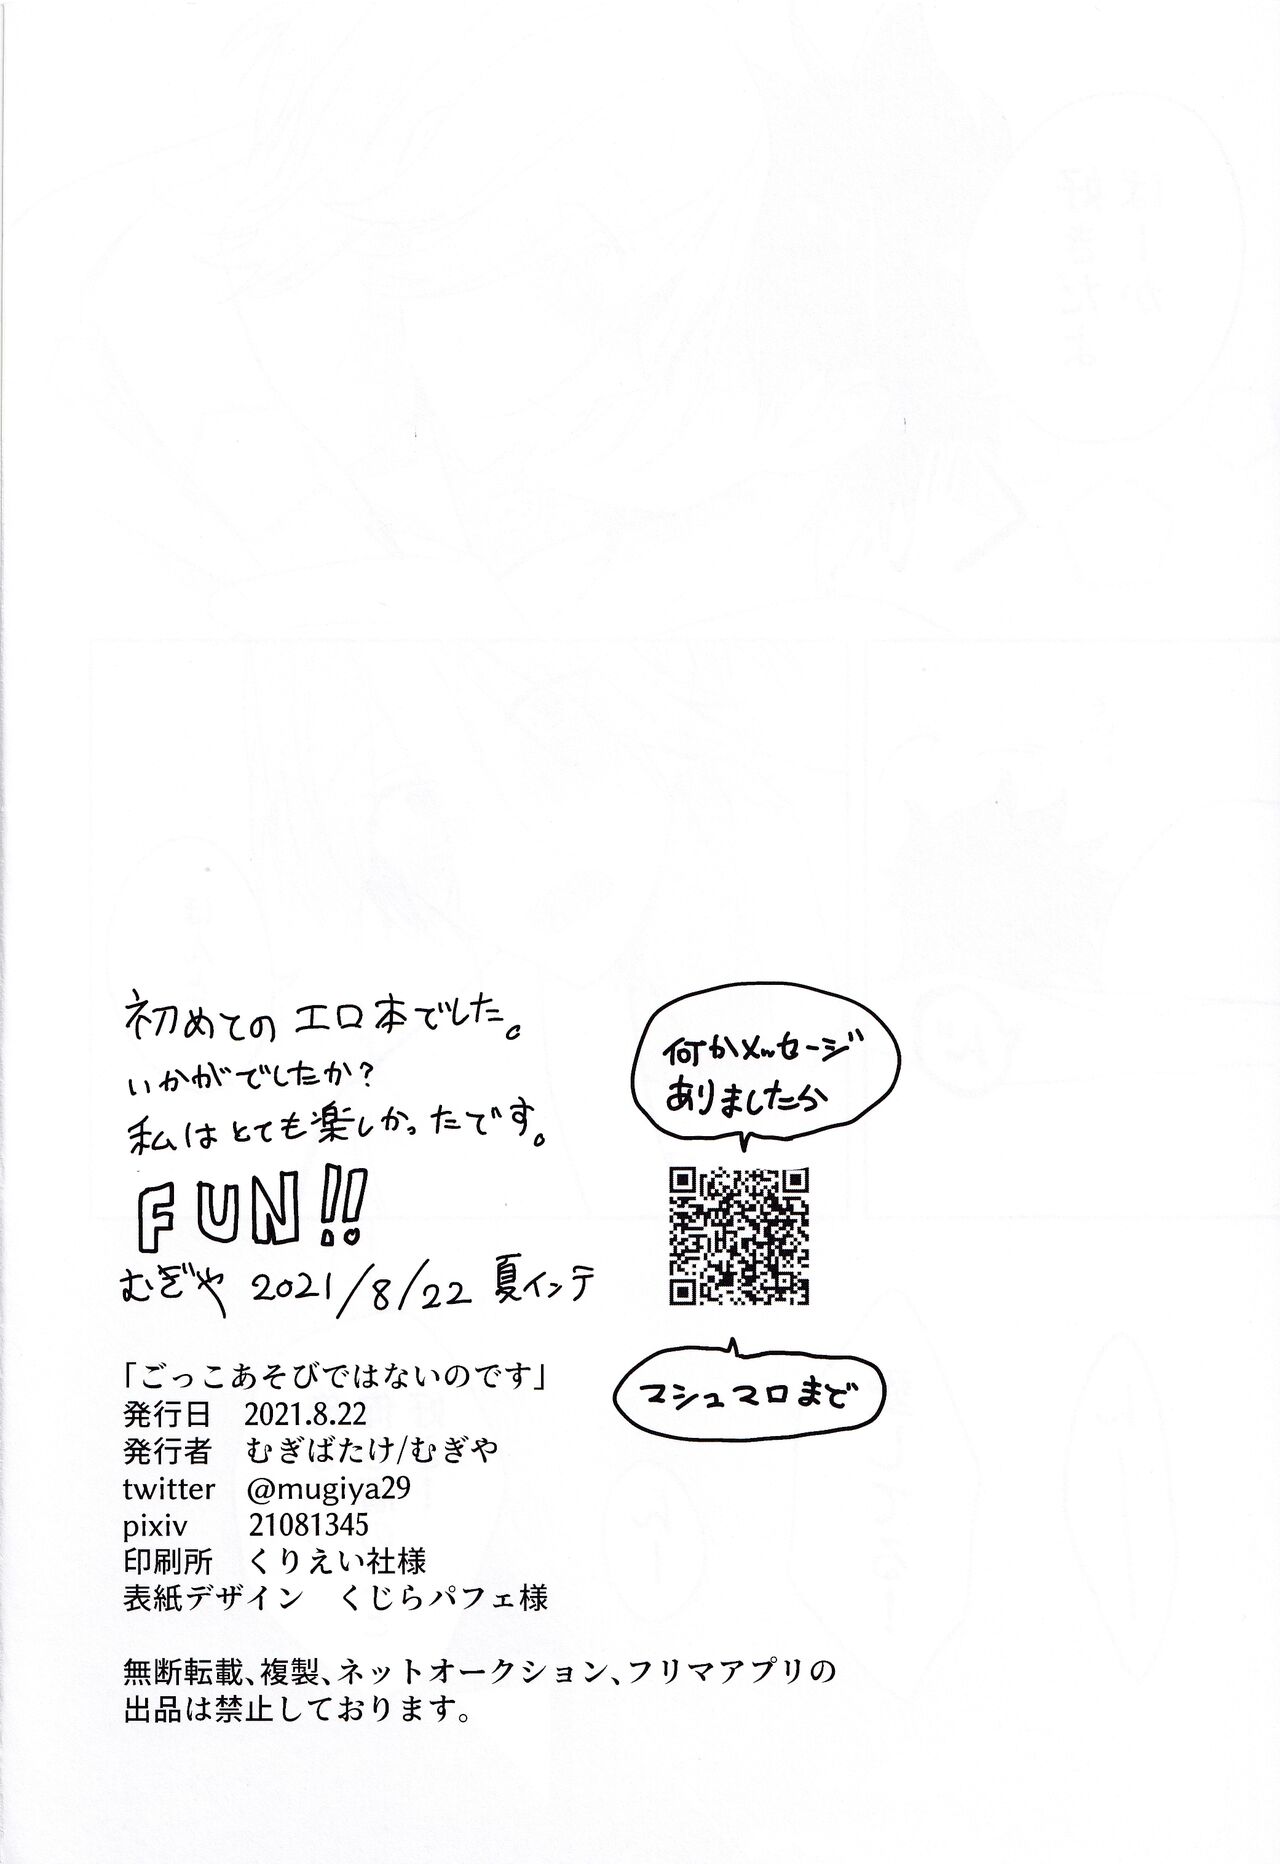 初めてのエロ本でした。
いかがでしたか?
私はとても楽しかったです。
FUN!!
むぎや 2021/8/22 夏インテ
何かメッセージ
ありましたか
マシュマロまで
「ごっこあそびではないのです」
発行日 2021.8.22
発行者 むぎばたけ/むぎや
twitter @mugiya29
pixiv 21081345
印刷所 くりえい社様
表紙デザイン くじらパフェ様
無断転載、複製、ネットオークション、フリマアプリの
出品は禁止しております。